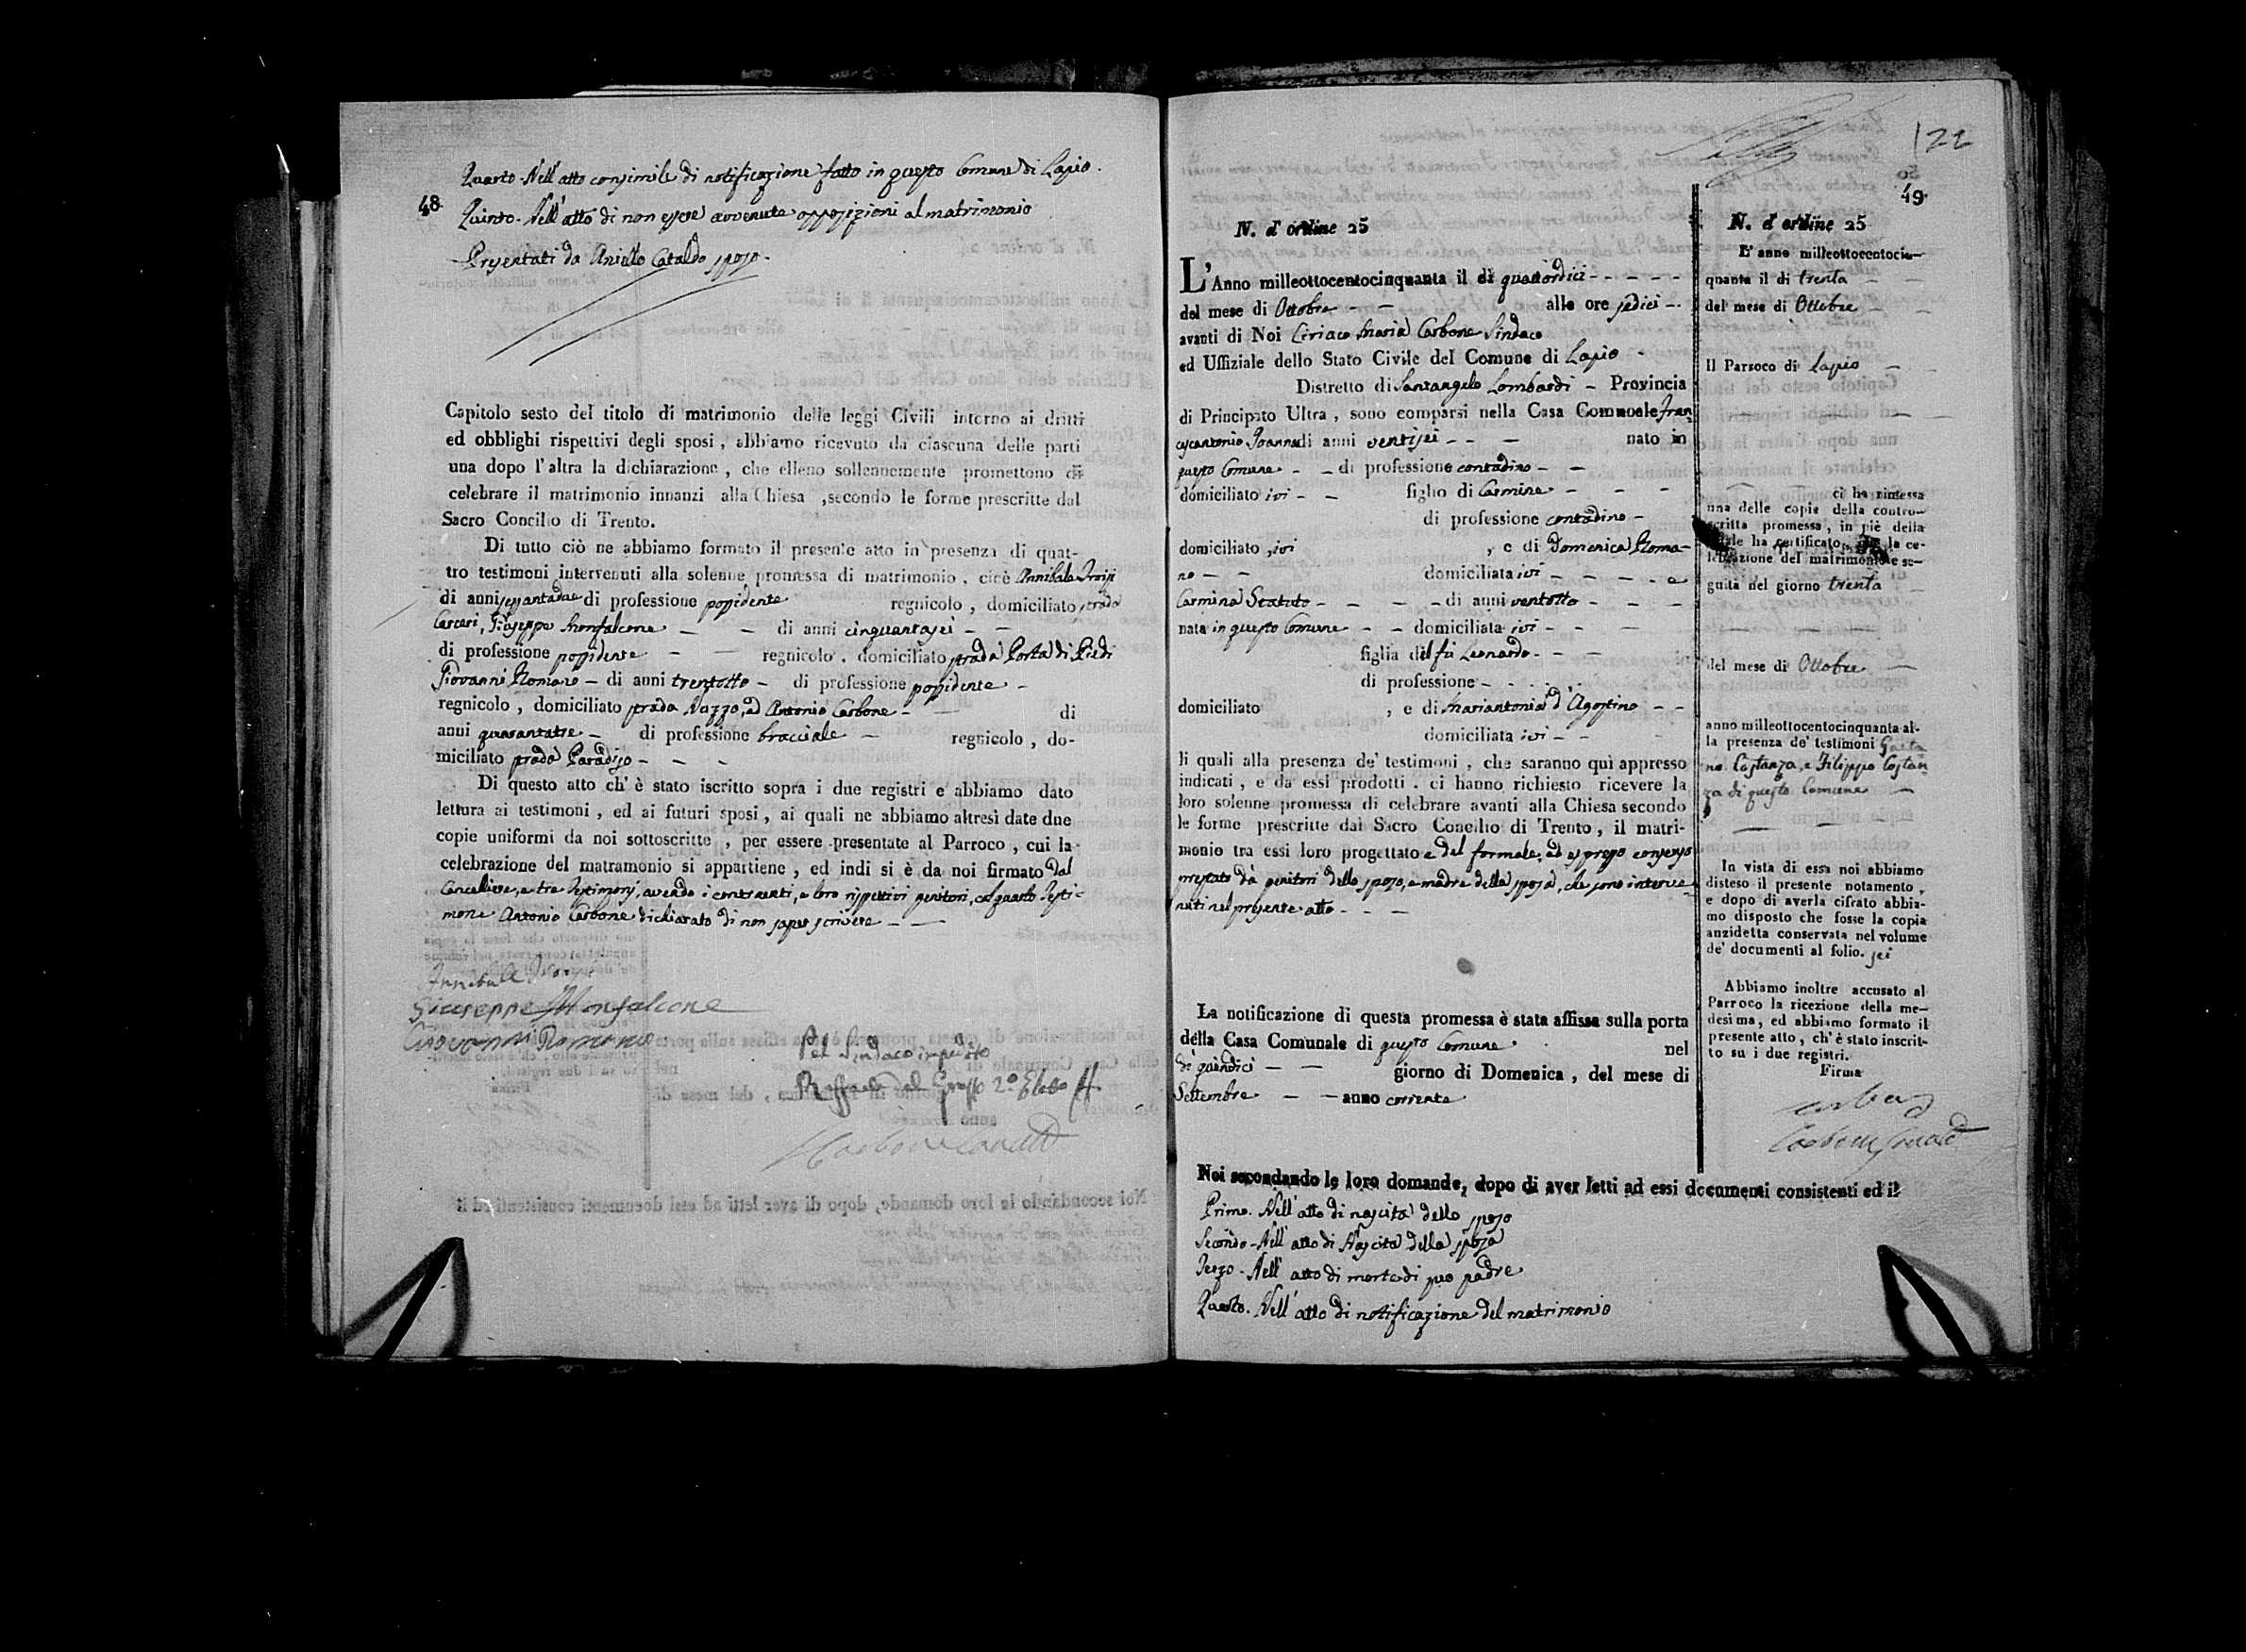 48
Quarto. Nell'atto consimile di notificazione fatto in questo Comune di Lapio.
Quinto. Nell'atto di non essere avvenute opposizioni al matrimonio
Presentati da Aniello Cataldo sposo.
Capitolo sesto del titolo di matrimonio delle leggi Civili intorno ai dritti
ed obblighi rispettivi degli sposi, abbiamo ricevuto da ciascuna delle parti
una dopo l'altra la dichiarazione, che elleno sollennemente promettono di
celebrare il matrimonio innanzi alla Chiesa, secondo le forme prescritte dal
Sacro Concilio di Trento.
Di tutto ciò ne abbiamo formato il presente atto in presenza di quat-
tro testimoni intervenuti alla solenne promessa di matrimonio, cioè Annibale Troisi
di anni sessantadue di professione possidente regnicolo, domiciliato strada
Carceri, Giuseppe Monfalcone di anni cinquantasei
di professione possidente regnicolo, domiciliato strada Porta di Piedi
Giovanni Romano di anni trentotto di professione possidente
regnicolo, domiciliato strada Nazzo, ed Antonio Carbone di
anni quarantatre di professione bracciale regnicolo, do-
miciliato strada Paradiso
Di questo atto ch' è stato iscritto sopra i due registri e abbiamo dato
lettura ai testimoni, ed ai futuri sposi, ai quali ne abbiamo altresì date due
copie uniformi da noi sottoscritte, per essere presentate al Parroco, cui la
celebrazione del matramonio si appartiene, ed indi si è da noi firmato dal
Cancelliere, e tre testimonj, avendo i contraenti, e loro rispettivi genitori, col quarto testi-
mone Antonio Carbone dichiarato di non saper scrivere
Annibale Troisi
Giuseppe Monfalcone
Giovanni Romano
Pel Sindaco impedito
Raffaele del Grosso 2.º Eletto
122
49
N. d'ordine 25
L'Anno milleottocentocinquanta il dì quattordici
del mese di Ottobre alle ore sedici
avanti di Noi Ciriaco Maria Carbone Sindaco
ed Uffiziale dello Stato Civile del Comune di Lapio
Distretto di Santangelo Lombardi – Provincia
di Principato Ultra, sono comparsi nella Casa Comunale Fran
cescantonio Joanna di anni ventisei nato in
questo Comune di professione contadino
domiciliato ivi figlio di Carmine
di professione contadino
domiciliato ivi, e di Domenica Roma-
no domiciliata ivi e
Carmina Statuto di anni ventotto
nata in questo Comune domiciliata ivi
figlia del fù Leonardo
di professione
domiciliato, e di Mariantonia d'Agostino
domiciliata ivi
li quali alla presenza de' testimoni, che saranno quì appresso
indicati, e da essi prodotti, ci hanno richiesto ricevere la
loro solenne promessa di celebrare avanti alla Chiesa secondo
le forme prescritte dal Sacro Concilio di Trento, il matri-
monio tra essi loro progettato e del formale, ed espresso consenso
prestato dà genitori dello sposo, e madre della sposa, che sono interve
nuti nel presente atto
La notificazione di questa promessa è stata affissa sulla porta
della Casa Comunale di questo Comune nel
dì quindici giorno di Domenica, del mese di
Settembre anno corrente
Noi secondando le loro domande, dopo di aver letti ad essi documenti consistenti ed il
Primo. Nell'atto di nascita dello sposo
Secondo. Nell'atto di Nascita della sposa
Terzo. Nell'atto di morte di suo padre
Quarto. Nell'atto di notificazione del matrimonio
N. d'ordine 25
L'anno milleottocentocin-
quanta il dì trenta
del mese di Ottobre
Il Parroco di Lapio
ci ha rimessa
una delle copie della contro-
scritta promessa, in piè della
quale ha certificato, che la ce-
lebrazione del matrimonio è se-
guita nel giorno trenta
del mese di Ottobre
anno milleottocentocinquanta al-
la presenza de' testimoni Gaeta
no Costanza, e Filippo Costan
za di questo Comune
In vista di essa noi abbiamo
disteso il presente notamento,
e dopo di averla cifrato abbia-
mo disposto che fosse la copia
anzidetta conservata nel volume
de' documenti al folio. sei
Abbiamo inoltre accusato al
Parroco la ricezione della me-
desima, ed abbiamo formato il
presente atto, ch' è stato inscrit-
to su i due registri.
Firma